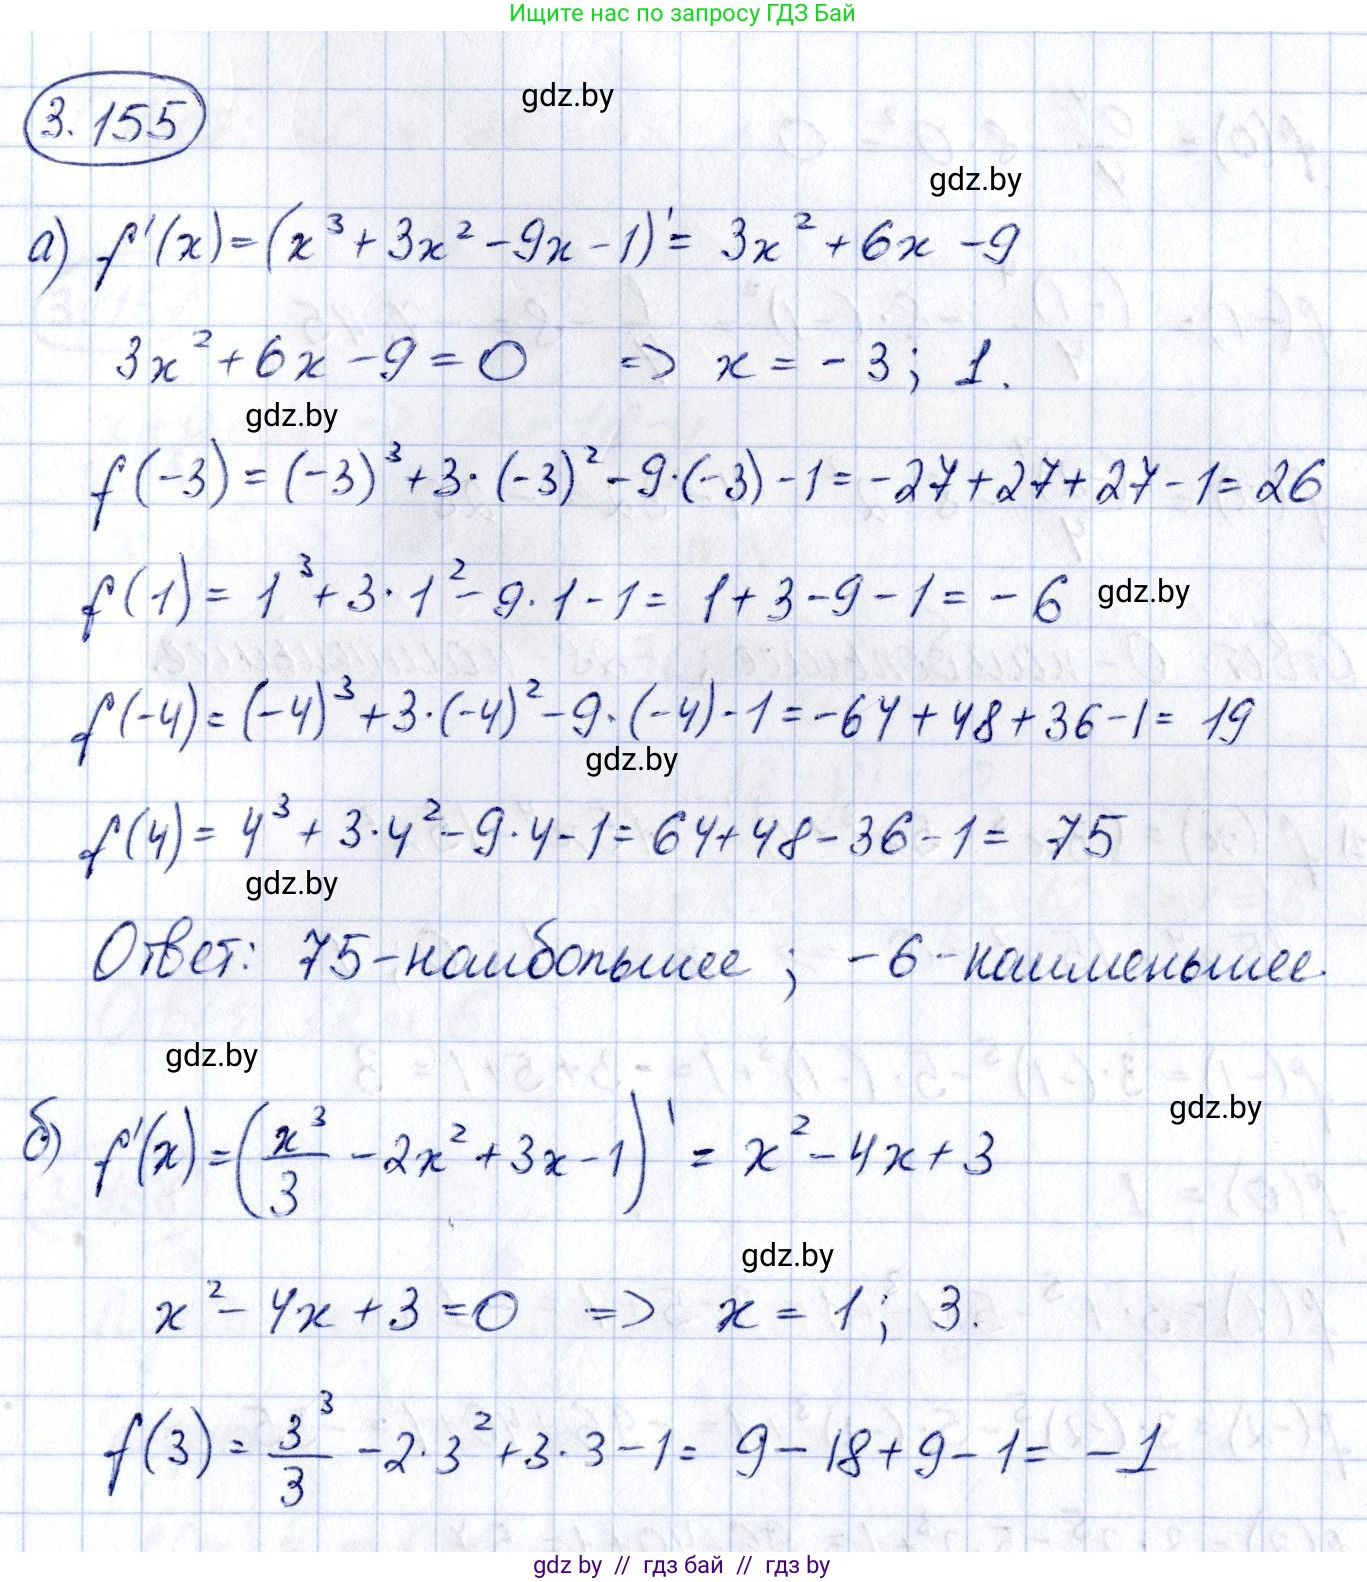 Ищите нас по запросу ГДЗ Бай
gdz.by
3.155
gdz.by
а) f'(x)=(x³+3x²-9x-1)'= 3x²+6x-9
3x²+6x-9=0 => x=-3; 1.
gdz.by
f(-3)=(-3)³+3·(-3)²-9·(-3)-1=-27+27+27-1=26
f(1)= 1³+3·1²-9·1-1= 1+3-9-1=-6
gdz.by
f(-4)=(-4)³+3·(-4)²-9·(-4)-1=-64+48+36-1= 19
gdz.by
f(4)= 4³+3·4²-9·4-1=64+48-36-1= 75
gdz.by
Ответ: 75-наибольшее ; -6-наименьшее.
gdz.by
gdz.by
б) f'(x)=(x³/3-2x²+3x-1)' = x²-4x+3
gdz.by
x²-4x+3=0 => x=1; 3.
f(3)= 3³/3-2·3²+3·3-1= 9-18+9-1= -1
gdz by // гдз бай // гдз by